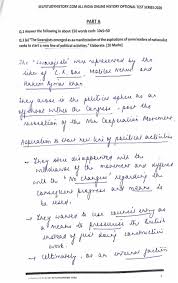 SELFSTUDYHISTORY.COM ALL INDIA ONLINE HISTORY OPTIONAL TEST SERIES 2020
PART A
Q.1 Answer the following in about 150 words each: 10x5=50
Q.1 (a) "The Swarajists emerged as the manifestation of the aspirations of some leaders of nationalist
ranks to start a new line of political activities." Elaborate. [10 Marks]
The 'Swarajists' were represented by the
likes of C.R. Das, Motilal Nehru and
Hakim Ajmal Khan.
They arose in the political sphere as an
offshoot within the Congress - post the
revocation of the Non Cooperation Movement
Aspiration to start new line of political activities
→ They were disappointed with the
withdrawal of the movement and differed
with the 'No Changers' regarding the
consequent progress and means to
be used.
→ They wanted to use council entry as
a means to pressurize the British
instead of just doing constructive
work.
→ Ultimately, as an internal faction